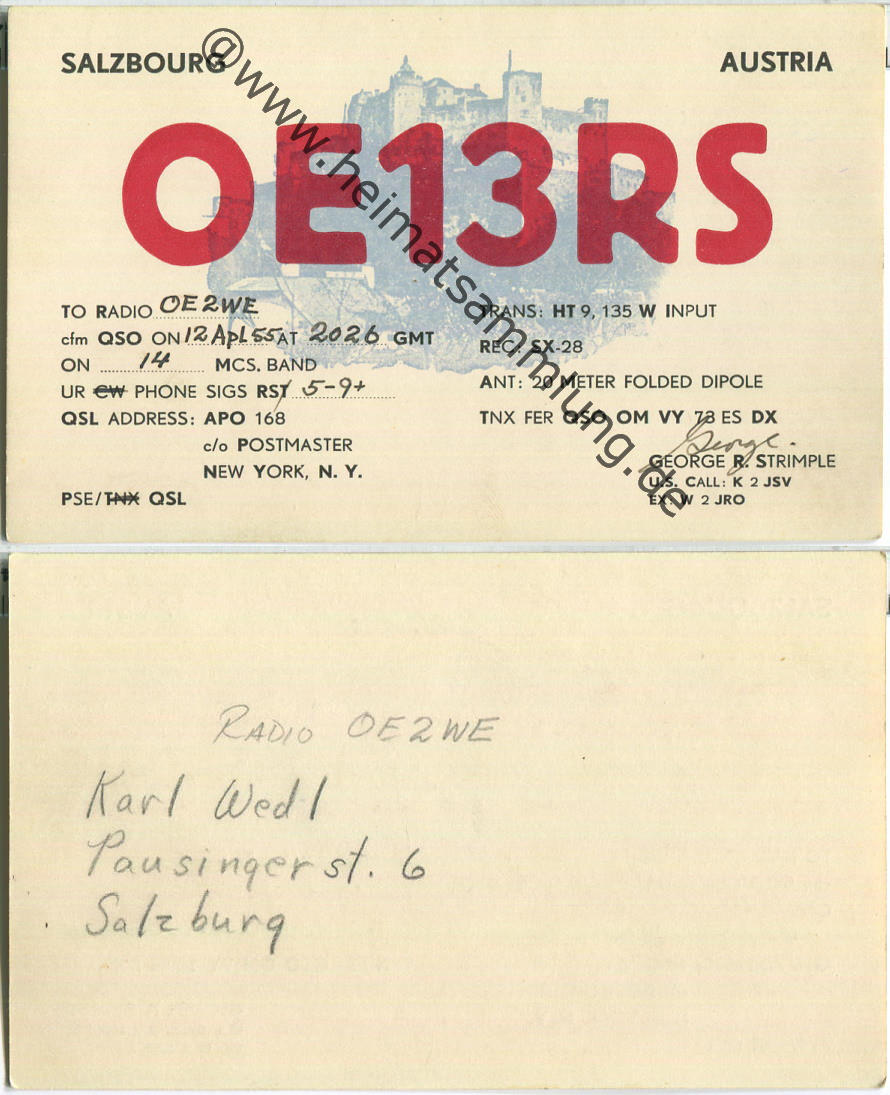 SALZBOURG AUSTRIA
OE13RS
TO RADIO OE2WE
cfm QSO ON 12 Apl 55 AT 2026 GMT
ON 14 MCS. BAND
UR CW PHONE SIGS RST 5-9+
QSL ADDRESS: APO 168
c/o POSTMASTER
NEW YORK, N. Y.
PSE/TNX QSL
TRANS: HT 9, 135 W INPUT
REC: SX-28
ANT: 20 METER FOLDED DIPOLE
TNX FER QSO OM VY 73 ES DX
George.
GEORGE R. STRIMPLE
U.S. CALL: K 2 JSV
EX: W 2 JRO
@www.heimatsammlung.de
RADIO OE2WE
Karl Wedl
Pausingerst. 6
Salzburg